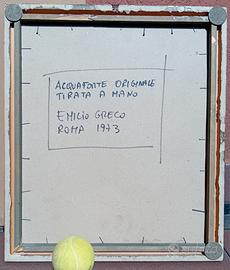 ACQUAFORTE ORIGINALE
TIRATA A MANO
EMILIO GRECO
ROMA 1973